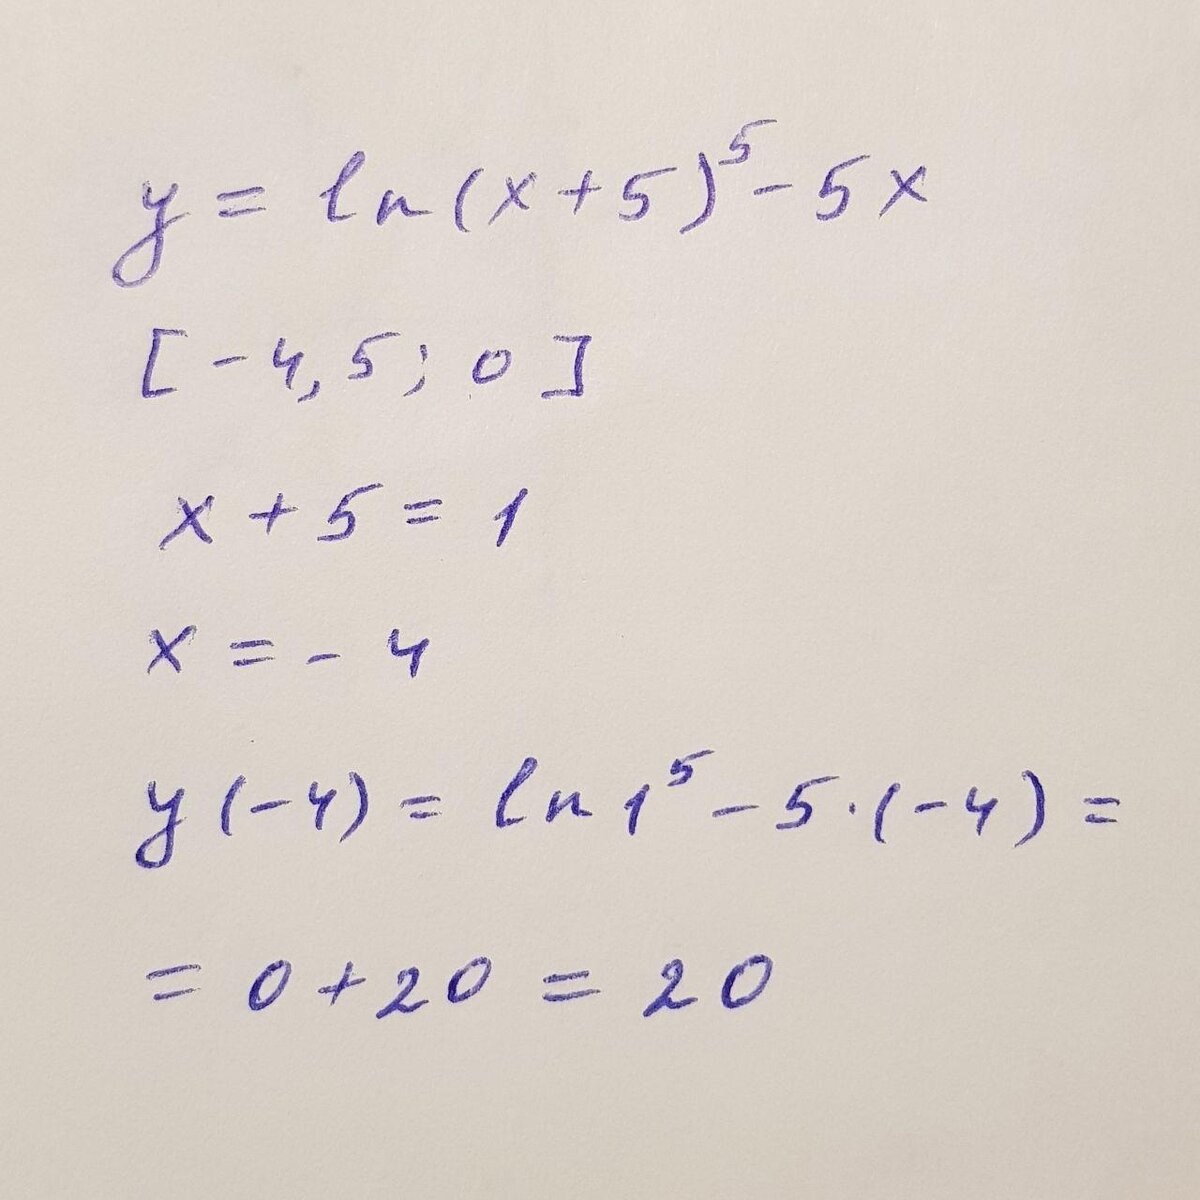 y = ln(x+5)⁵ - 5x
[-4,5; 0]
x + 5 = 1
x = - 4
y(-4) = ln 1⁵ - 5·(-4) =
= 0 + 20 = 20